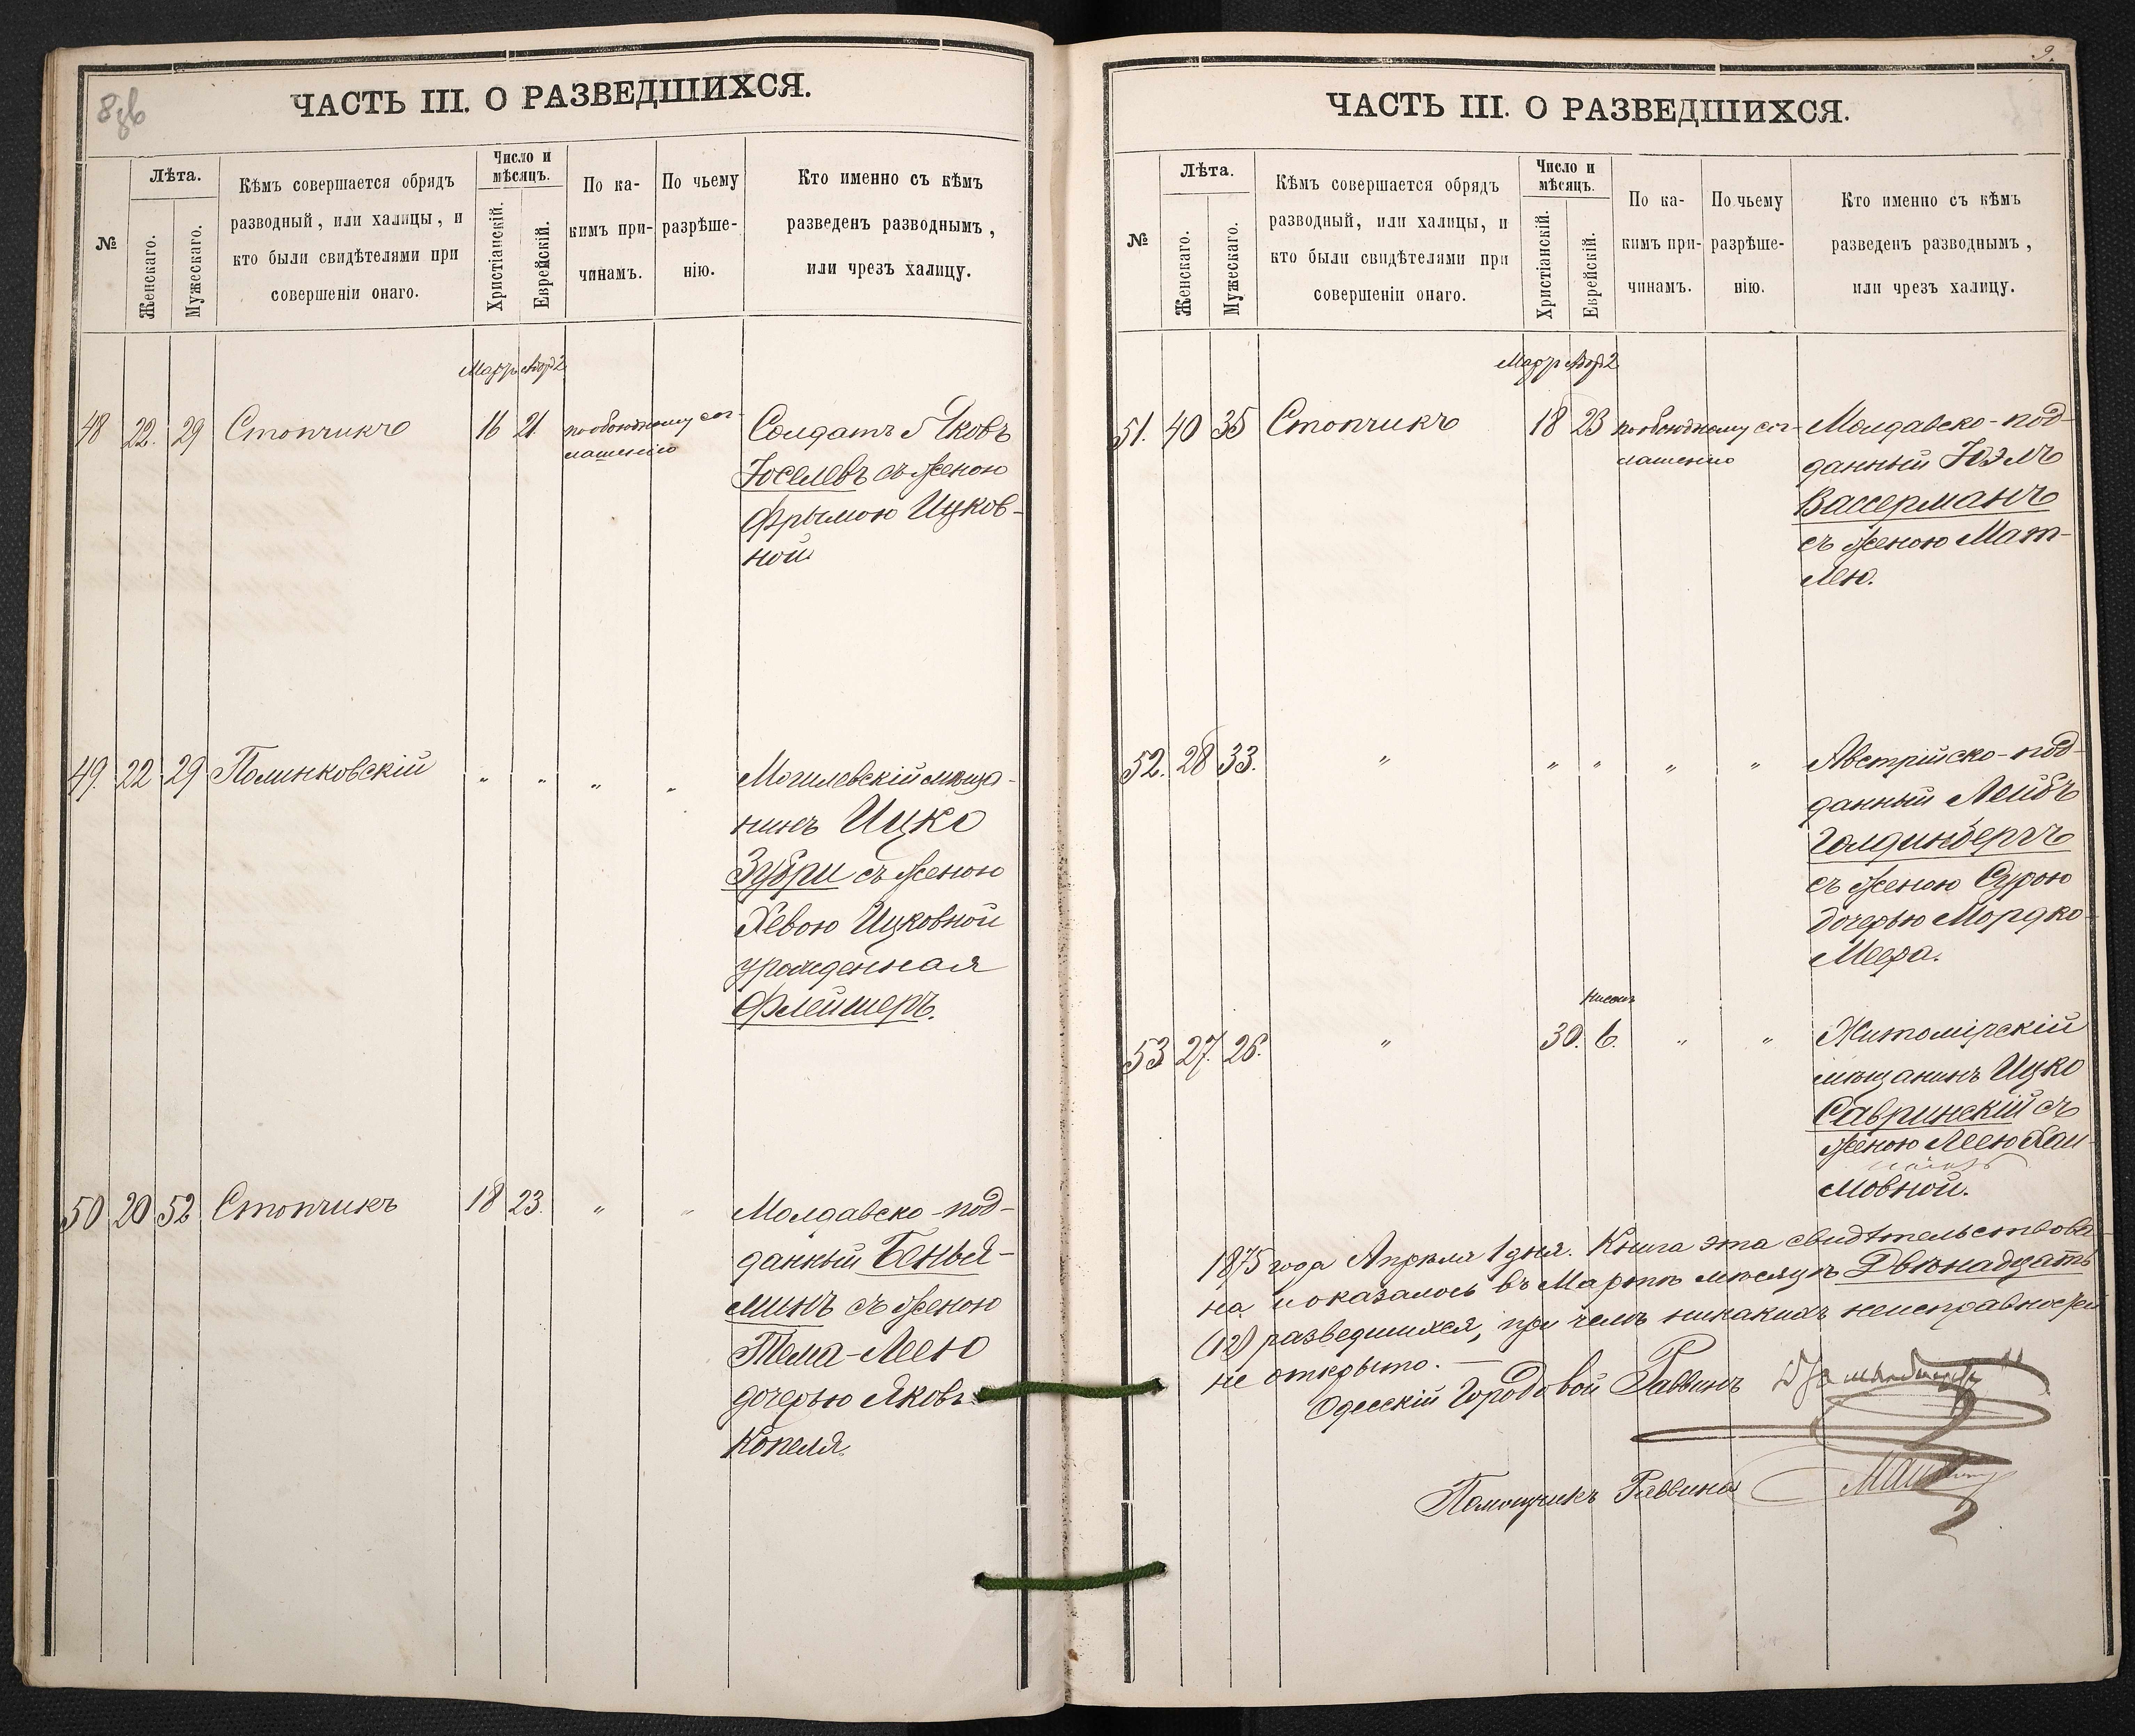 8зб
ЧАСТЬ III. О РАЗВЕДШИХСЯ.
№
Лѣта.
Женскаго.
Мужескаго.
Кѣмъ совершается обрядъ
разводный, или халицы, и
кто были свидѣтелями при
совершеніи онаго.
Число и
мѣсяцъ.
Христіанскій.
Еврейскій.
По ка-
кимъ при-
чинамъ.
По чьему
разрѣше-
нію.
Кто именно съ кѣмъ
разведенъ разводнымъ,
или чрезъ халицу.
Март Адр 2
48 22. 29 Стопчикъ 16 21. по обоюдному сог-
лашенію
Солдатъ Яковъ
Іоселевъ съ женою
Фрымою Ицков-
ной.
49. 22 29 Полинковскій " " " "
Могилевскій мѣща-
нинъ Ицко
Зубри съ женою
Хевою Ицковной
урожденная
Флейшеръ.
50 20 52 Стопчикъ 18 23. " "
Молдавско-под-
данный Бенья-
минъ съ женою
Тема-Леею
дочерью Яковъ
Копеля.
9.
ЧАСТЬ III. О РАЗВЕДШИХСЯ.
№
Лѣта.
Женскаго.
Мужескаго.
Кѣмъ совершается обрядъ
разводный, или халицы, и
кто были свидѣтелями при
совершеніи онаго.
Число и
мѣсяцъ.
Христіанскій.
Еврейскій.
По ка-
кимъ при-
чинамъ.
По чьему
разрѣше-
нію.
Кто именно съ кѣмъ
разведенъ разводнымъ,
или чрезъ халицу.
Март Адр 2
51. 40 35 Стопчикъ 18 23 по обоюдному сог-
лашенію
Молдавско-под-
данный Юэлъ
Вассерманъ
съ женою Мат-
лею.
52. 28 33. " " " " "
Австрійско-под-
данный Лейбъ
Голдинбергъ
съ женою Сурою
дочерью Мордко-
Меера.
Нисонъ
53 27. 26. " 30. 6. " "
Житомірскій
мѣщанинъ Ицко
Савринскій съ
женою Леею Хаи-
мовной.
1875 года Апрѣля 1 дня. Книга эта свидѣтельствова-
на и оказалось въ Мартѣ мѣсяцѣ Двѣнадцать
(12) разведшихся, при чемъ никакихъ неисправностей
не открыто. —
Одесскій Городовой Раввинъ
Помощникъ Раввина